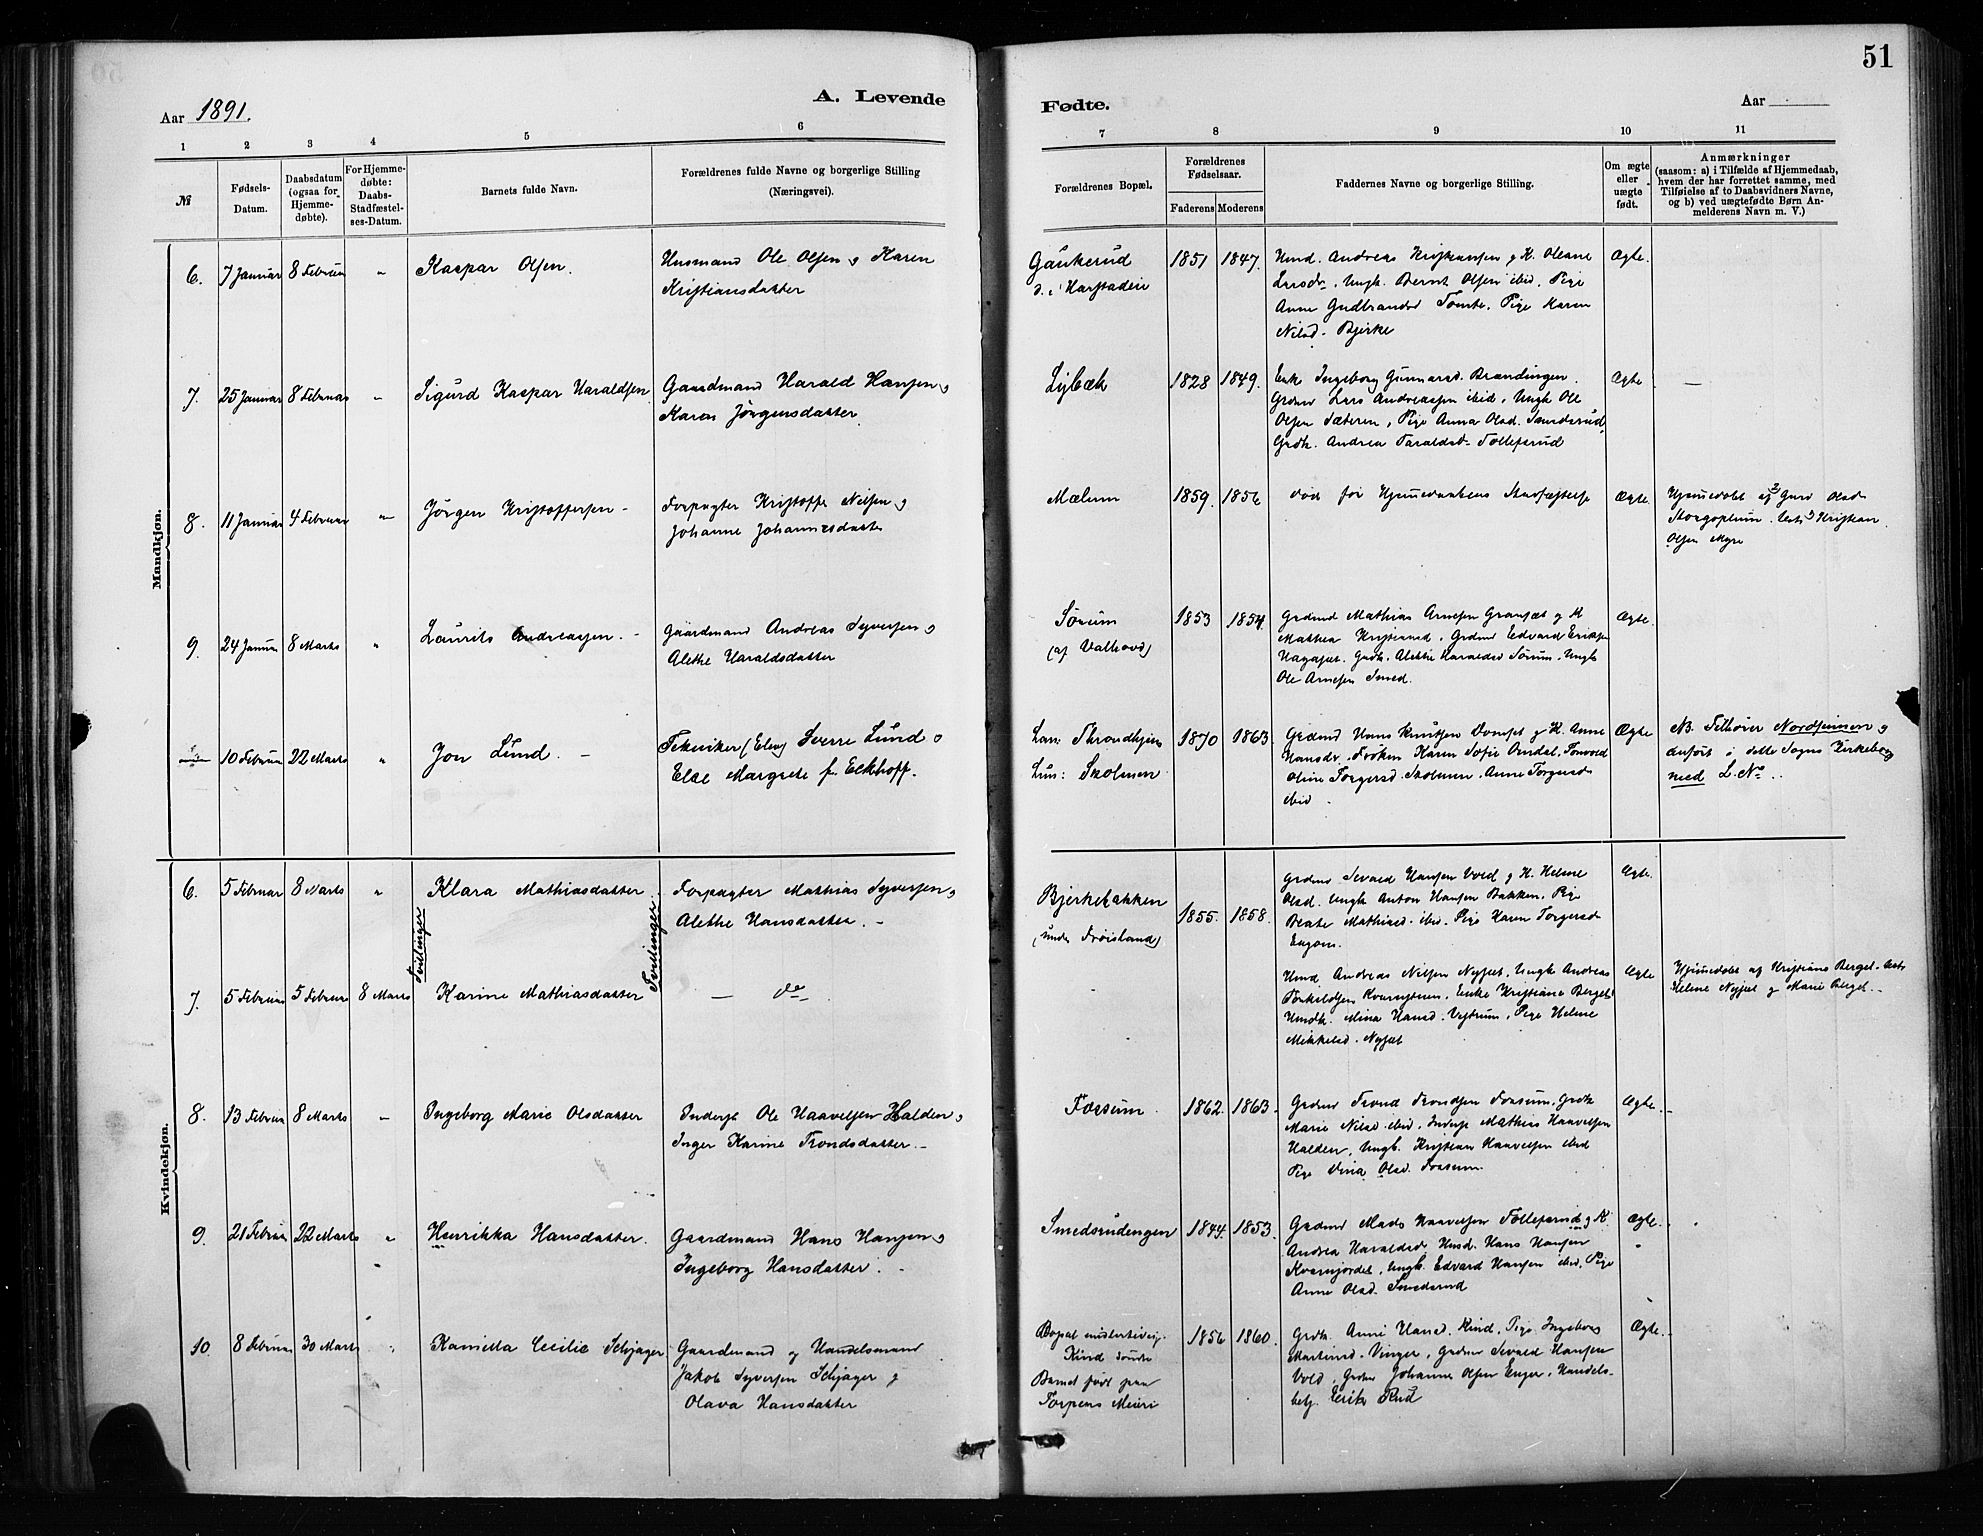 51
Aar 1891.
A. Levende
Fødte.
Aar
1 2 3 4 5 6 7 8 9 10 11
№
Fødsels-
Datum.
Daabsdatum
(ogsaa for
Hjemme-
døbte).
For Hjemme-
døbte:
Daabs-
Stadfæstel-
ses-Datum.
Barnets fulde Navn.
Forældrenes fulde Navne og borgerlige Stilling
(Næringsvei).
Forældrenes Bopæl.
Forældrenes
Fødselsaar.
Faderens Moderens
Faddernes Navne og borgerlige Stilling.
Om ægte
eller
uægte
født.
Anmærkninger
(saasom: a) i Tilfælde af Hjemmedaab,
hvem der har forrettet samme, med
Tilføielse af to Daabsvidners Navne,
og b) ved uægtefødte Børn An-
melderens Navn m. V.)
Mandkjøn.
6. 7 Januar 8 Februar " Kaspar Olsen.
Husmand Ole Olsen og Karen
Kristiansdatter
Gaukerud
1851 1847.
Husd. Andreas Kristiansen og K. Oleane
Larsdr. Ungk. Bernt Olsen ibid, Pige
Anne Gudbrandsd Tomte, Pige Karen
Nilsd. Bjerke
Ægte.
7. 25 Januar 8 Februar " Sigurd Kaspar Haraldsen
Gaardmand Harald Hansen og
Karen Jörgensdatter
Lybæk
1828 1849.
Enke Ingeborg Gunnarsd. Brændingen.
Grdmd Lars Andreassen ibid, Ungk Ole
Olsen Sæteren, Pige Anna Olsd. Smedsrud,
Grdk. Andrea Taraldsd. Tollefsrud
Ægte —
8. 11 Januar 4 Februar " Jörgen Kristoffersen -
Forpagter Kristoffer Nilsen og
Johanne Johannesdatter
Mælum
1859. 1856
död før Hjemmedaabens Stadfæstelse
Ægte
Hjemmedøbt af Guro Olsd
Olsen Myre
9. 24 Januar 8 Marts " Laurits Andreassen. -
Gaardmand Andreas Syversen og
Alethe Haraldsdatter
Sörum
(af Valhovd)
1853 1854.
Grdmd Mathias Arnesen Gransæt og K
Mathea Kristiansd, Grdmd Edvard Eriksen
Hagasæt. Grdk. Alethe Haraldsd Sörum. Ungk
Ole Arnesen Smed.
Ægte.
10 Februar 22 Marts " Jon Lund. —
Tekniker (Elev) Sverre Lund o
Else Margrete f. Eckhoff.
Han: Throndhjem
Hun: Skolmen
1870 1863
Grdmd Hans Knutsen og K. Anne
Hansdr. Fröken Karen Sofie Omdal, Tonvold
Oline Torgersd. Skolmen. Anne Torgersd
ibid.
Ægte
NB. Tilhører Nordsinnen og
anfört i dette Sogns Kirkebog
med L. No.
Kvindekjøn.
6. 5 Februar 8 Marts " Klara Mathiasdatter
Tvillinger
Tvillinger
Forpagter Mathias Syversen og
Alethe Hansdatter. -
Bjerkebakken
(under Fröisland)
1855. 1858.
Grdmd Sevald Hansen Vold og K. Helene
Olsd. Ungk Anton Hansen Bakken. Pige
Beate Mathiasd. ibid. Pige Karen Torgersd
Engom.
Ægte.
7. 5 Februar 5 Februar 8 Marts Karine Mathiasdatter
— do
Husd Andreas Nilsen Nysæt, Ungk Andreas
Torkildsen Kvernstuen, Enke Kristiane Berget
Husdk. Mina Hansd. Vestrum, Pige Helene
Mikkelsd. Nysæt
Ægte
Hjemmedøbt af Kristiane Berget. Test:
Helene Nysæt og Marie Berget. -
8. 13 Februar 8 Marts - Ingeborg Marie Olsdatter
Inderst Ole Haavelsen Halden og
Inger Karine Trondsdatter. -
Fossum.
1862. 1863.
Grdmd Trond Trondsen Fossum. Grdk
Marie Nilsd. ibid. Inderst Mathias Haavelsen
Halden, Ungk. Kristian Haavelsen ibid
Pige Olsd. Fossum.
Ægte.
9. 21 Februar 22 Marts " Henrikka Hansdatter.
Gaardmand Hans Hansen og
Ingeborg Hansdatter. -
Smedsrudengen
1844. 1853.
Grdmd Mads Haavelsen Tollefsrud og K.
Andrea Haraldsd, Husd. Hans Hansen
Kvernjordet, Ungk. Edvard Hansen ibid, Pige
Anne Olsd. Smedsrud
Ægte.
10. 8 Februar 30 Marts " Kamilla Cecilie Schjager
Gaardmand og Handelsmand
Jakob Syversen Schjager og
Olava Hansdatter
Bopæl
Kind söndre
Barnet födt paa
Torpens Meieri
1856 1860.
Grdk. Anne Hansd. Kind, Pige Ingeborg
Martinsd. Vinger, Grdmd Sevald Hansen
Vold, Grdmd Johannes Olsen Enger, Handels-
betj. Erik Rud
Ægte.